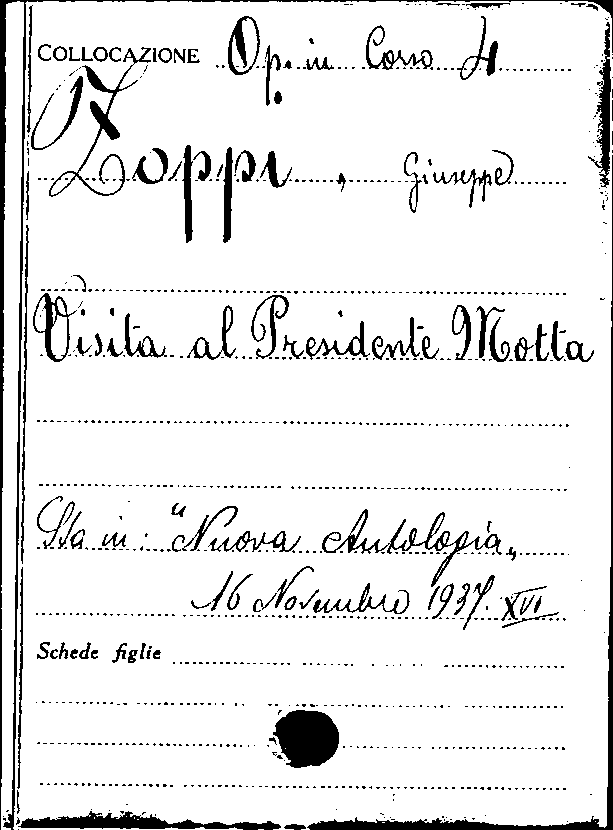 COLLOCAZIONE Op. in Corso 4
Zoppi, Giuseppe
Visita al Presidente Motta
Sta in: "Nuova Antologia„
16 Novembre 1937. XVI
Schede figlie